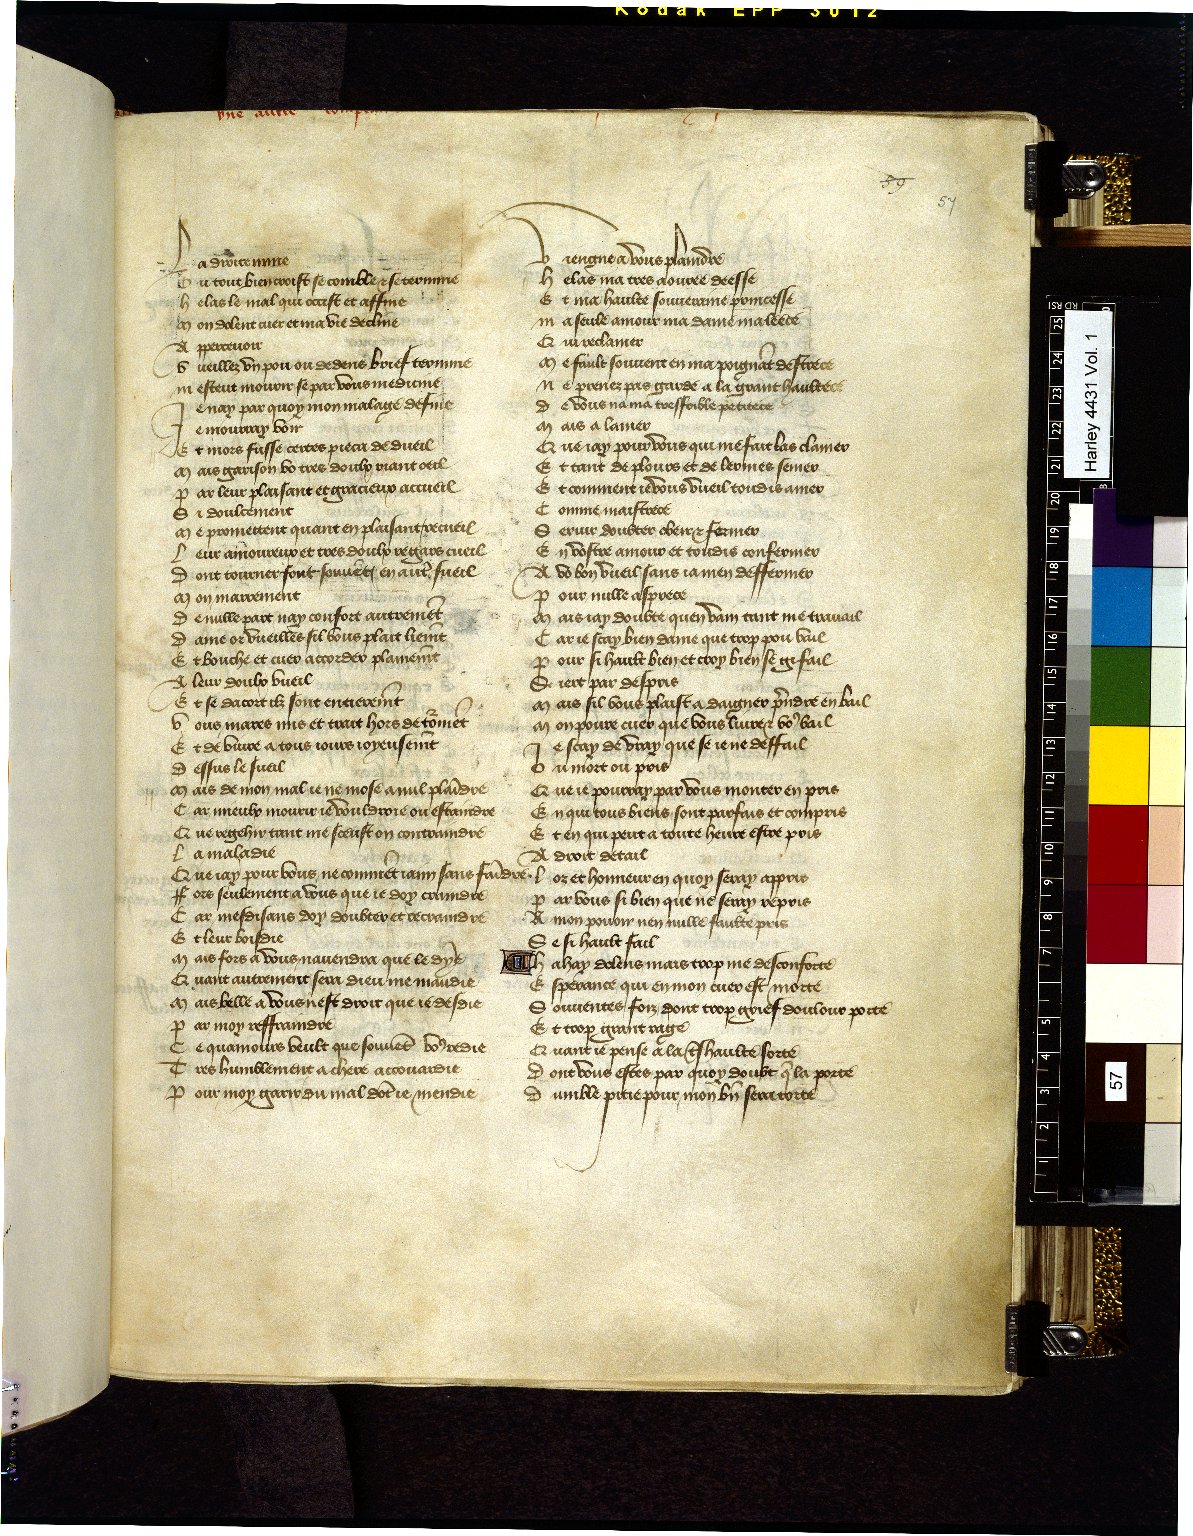 Kodak EPP 3012
vne autre
59
57
L a droite mine
O u tout bien croist se comble & se termine
H elas le mal qui occist et affine
M on dolent cuer et ma vie decline
A ppercevoir
V ueillez vn pou ou dedens brief termine
M esteut mourir se par vous medicine
J e nay par quoy mon malage define
J e mourray voir
E t mors fusse certes pieca de dueil
M ais garison vo tres doulx riant oeil
P ar leur plaisant et gracieux accueil
S i doulcement
M e promettent quant en plaisant recueil
L eur amoureux et tres doulx regars cueil
D ont tourner font souuent en autre fueil
M on marrement
D e nulle part nay confort autrement
D ame or vueilles sil vous plait liement
E t bouche et cuer accorder plainement
A leur doulx vueil
E t se dacort ilz sont entierement
V ous mares mis et trait hors de torment
E t de viure a tous iours ioyeusement
D essus le sueil
M ais de mon mal ie ne mose a nul plaindre
C ar mieulx mourir ie vouldroie ou estaindre
Q ue regehir tant me sceust on contraindre
L a maladie
Q ue iay pour vous ne comment iaim sans faindre
F ors seulement a vous que ie doy craindre
C ar mesdisans doy doubter et recraindre
E t leur boisdie
M ais fors a vous nauendra que le dye
Q uant autrement sera dieu me maudie
M ais belle a vous nest droit que ie desdie
P ar moy reffraindre
C e quamours veult que souuent vous redie
T res humblement a chere acouardie
P our moy garir du mal dont ie mendie
V iengne a vous plaindre
H elas ma tres aouree deesse
E t ma haulte souueraine princesse
M a seule amour ma dame maleece
Q ui reclamer
M e fault souuent en ma poignant destrece
N e prenez pas garde a la grant haultece
D e vous na ma tresfoible petitece
M ais a lamer
Q ue iay pour vous qui me fait las clamer
E t tant de plours et de lermes semer
E t comment ie vous vueil toudis amer
C omme maistrece
S eruir doubter obeir & fermer
E n vostre amour et toudis confermer
A vo bon vueil sans ia men deffermer
P our nulle asprece
M ais iay doubte quen vain tant me trauail
C ar ie scay bien dame que trop pou vail
P our si hault bien et croy bien se gi fail
S iert par despris
M ais sil vous plaist a daigner prendre en bail
M on poure cuer que vous liure & vous bail
J e scay de vray que se ie ne deffail
O u mort ou pris
Q ue ie pourray par vous monter en pris
E n qui tous biens sont parfais et compris
E t en qui peut a toute heure estre pris
A droit detail
L oz et honneur en quoy seray appris
P ar vous si bien que ne seray repris
A mon pouoir nen nulle faulte pris
S e si hault fail
H a hay dolens mais trop me desconforte
E sperance qui en mon cuer est morte
S ouuentes foiz dont trop grief doulour porte
E t trop grant rage
Q uant ie pense a la tres haulte sorte
D ont vous estes par quoy doubt que la porte
D umble pitie pour mon bien sera torte
Harley 4431 Vol. 1
57